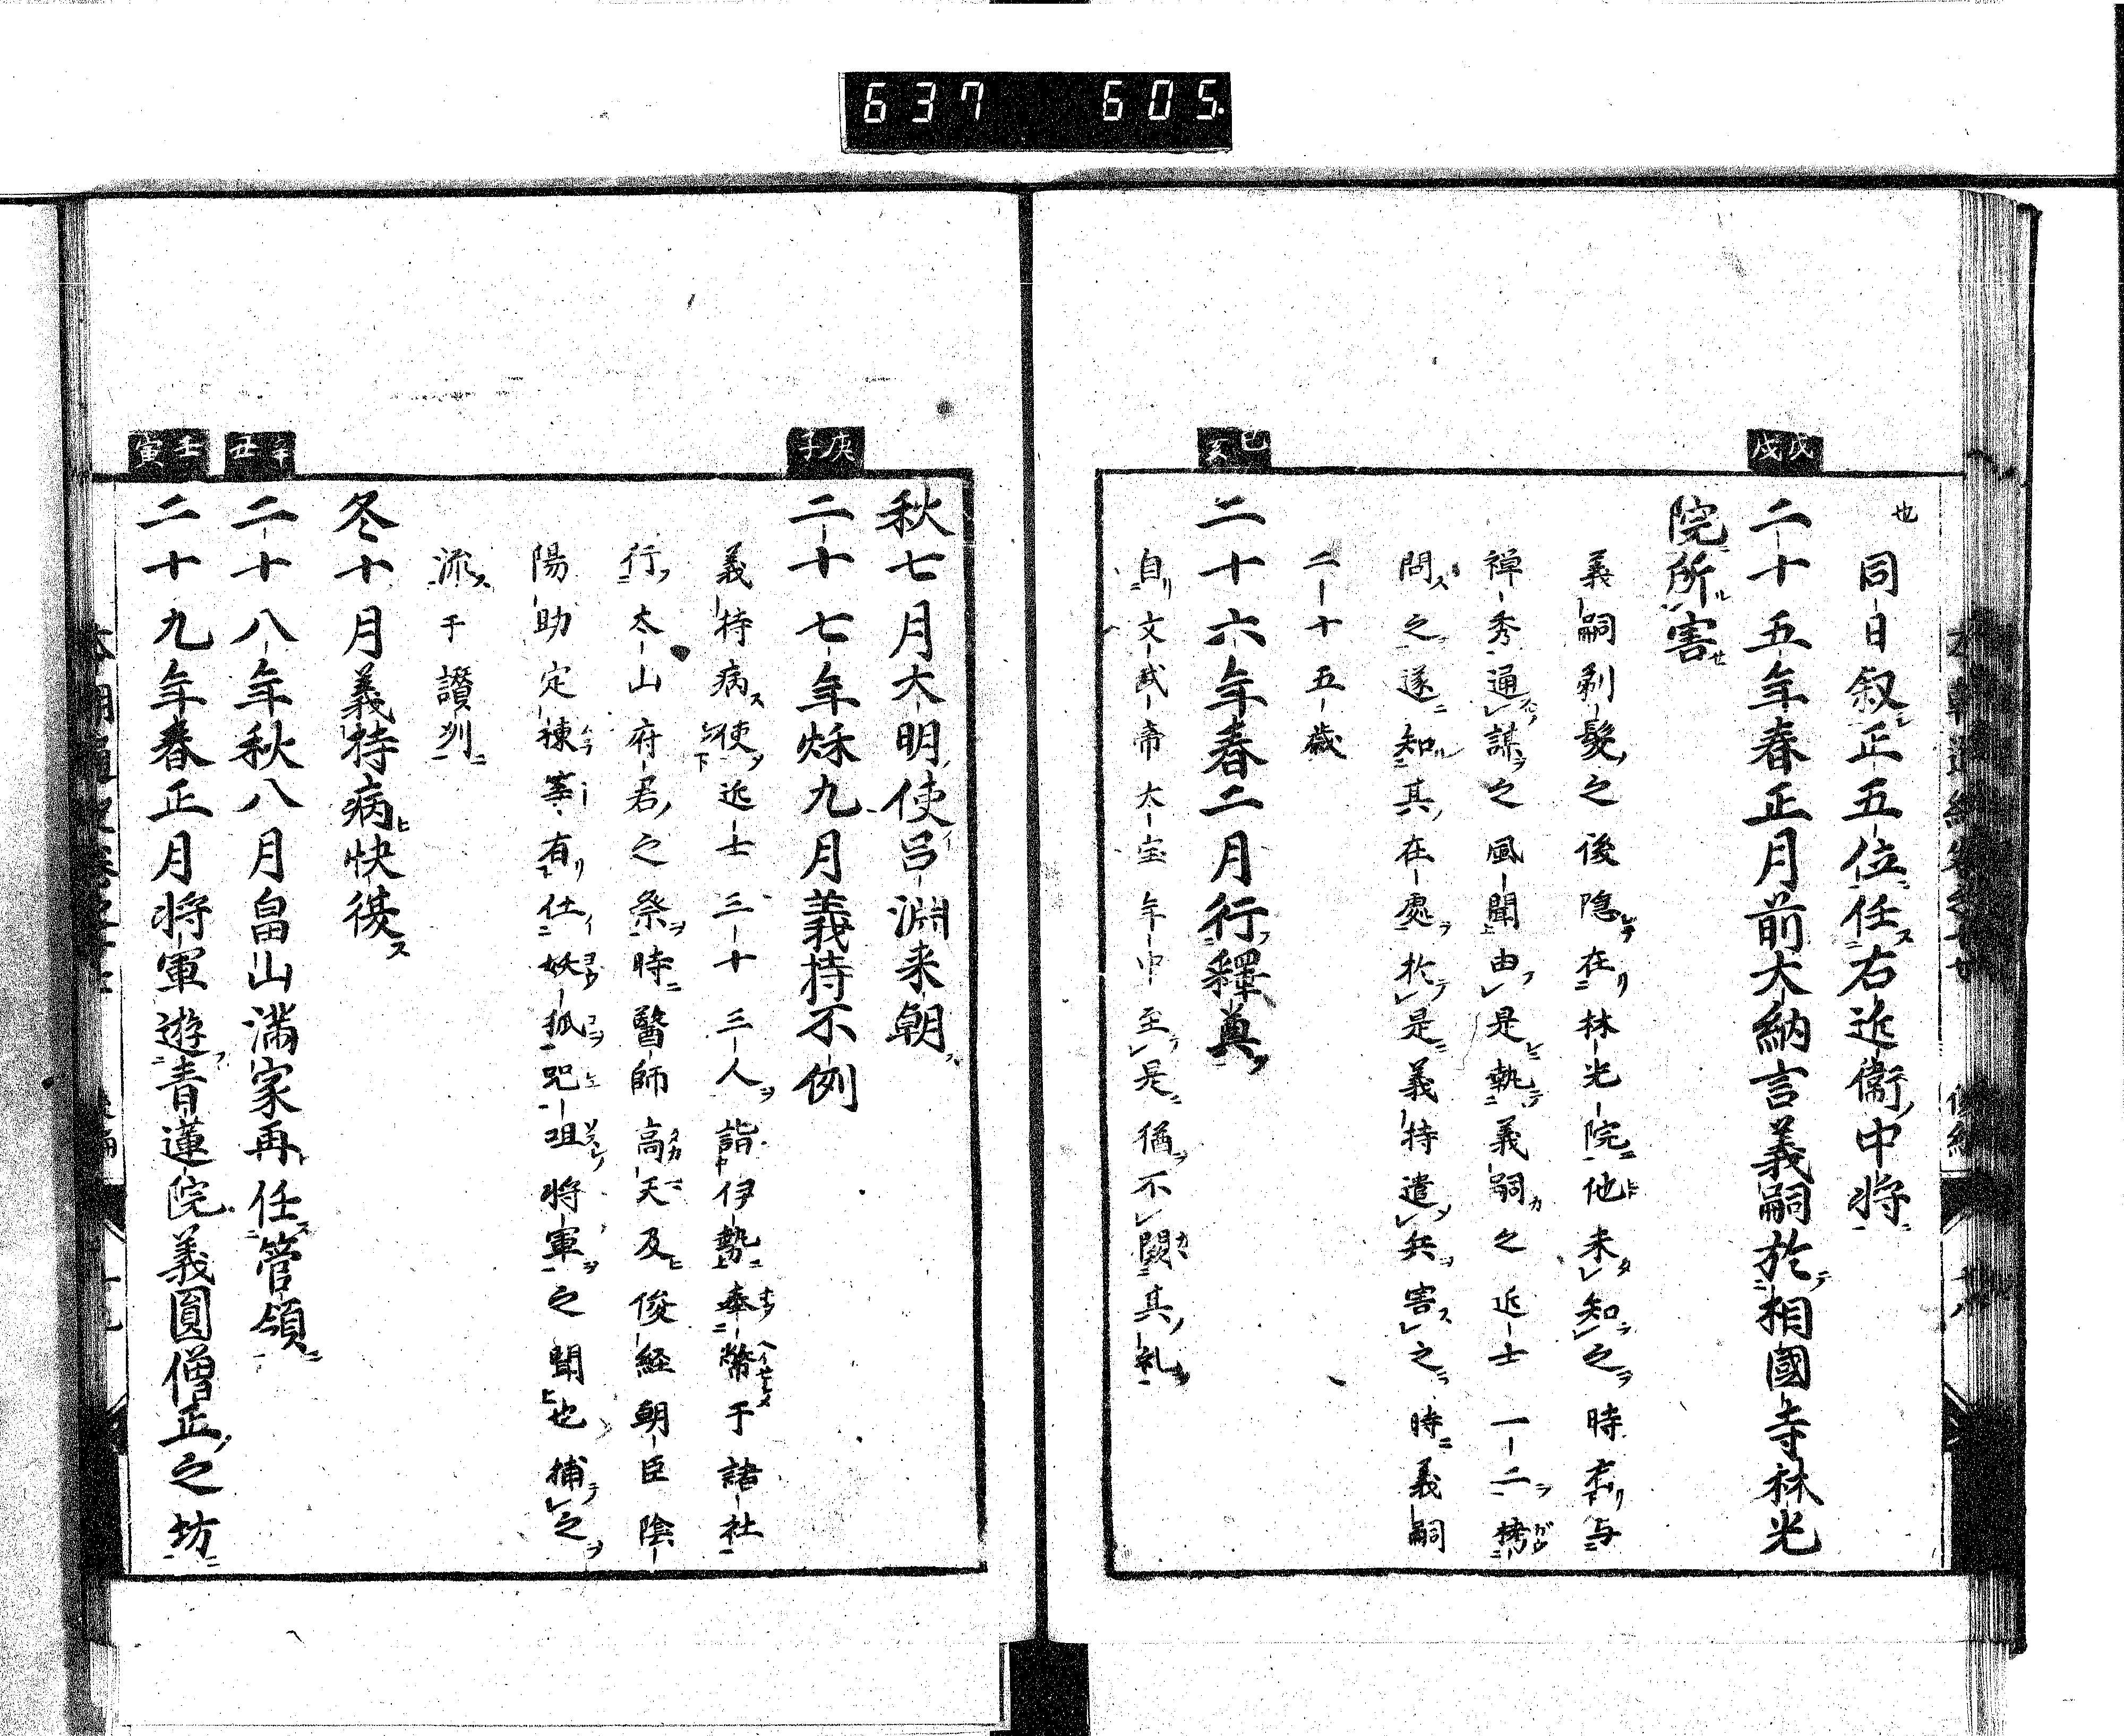 637 605.
也
同日叙正五位任右近衛中将
戊戌
二十五年春正月前大納言義嗣於相國寺林光
院所害
義嗣剃髮之後隠在林光院他未知之時
禅秀通謀之風聞由是執義嗣之近士一二
問之遂知其在處於是義持遣兵害之時義嗣
二十五歳
己亥
二十六年春二月行釋奠
自文武帝大宝年中至是猶不闕其礼
秋七月大明使呂淵来朝
庚子
二十七年秌九月義持不例
義持病使近士三十三人詣伊勢奉幣于諸社
行太山府君之祭時醫師高天及俊経朝臣陰
陽助定棟等有仕妖狐咒咀将軍之聞也捕之
流于讃州
冬十月義持病快復
辛丑
二十八年秋八月畠山満家再任管領
壬寅
二十九年春正月将軍遊青蓮院義圓僧正之坊